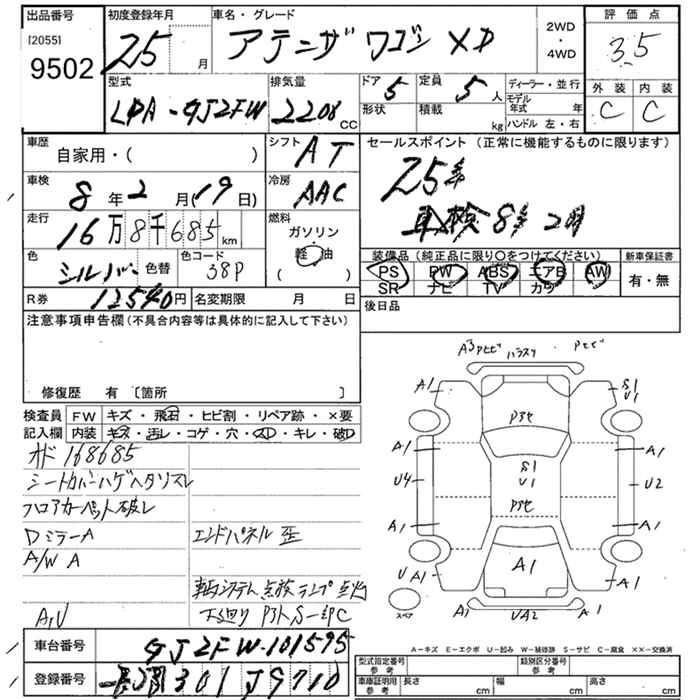 出品番号 初度登録年月 車名・グレード 2WD・4WD 評価点
[2055] 9502 25 月 アテンザ ワゴン XD 3.5
型式 排気量 ドア 5 定員 5 人 ディーラー・並行 外装 内装
LDA-GJ2FW 2208 CC 形状 積載 kg モデル年式 年 ハンドル 左・右 C C
車歴 自家用・( ) シフト AT セールスポイント (正常に機能するものに限ります)
車検 8年2月(19日) 冷房 AAC 25年
走行 16万8千685km 燃料 ガソリン 軽油 ( ) 車検8年2月
色 シルバー 色替 色コード 38P 装備品(純正品に限り○をつけてください) 新車保証書
PS PW ABS エアB AW 有・無
SR ナビ TV カワ
R券 12540円 名変期限 月 日 後日品
注意事項申告欄(不具合内容等は具体的に記入して下さい)
修復歴 有 〔箇所 〕
検査員 FW キズ・飛石・ヒビ割・リペア跡・×要
記入欄 内装 キズ・汚レ・コゲ・穴・スレ・キレ・破レ
オド 168685
シートカバーハゲヘタリスレ
フロアカーペット破レ
Dミラー A エンドパネル 歪
A/W A
システム点検ランプ点灯
A,U 下廻り
車台番号 GJ2FW-101595
登録番号 301 9710
A1 S1 U1
A1 A1
U4 S1 U1 U2
A1 A1
UA1 A1 A1
スペア A1 UA2 A1
A-キズ E-エクボ U-凹み W-補修跡 S-サビ C-腐食 ××-交換済
型式指定番号 参考 類別区分番号 参考
車庫証明用 参考 長さ cm 幅 cm 高さ cm